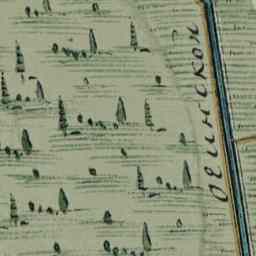 оеинской